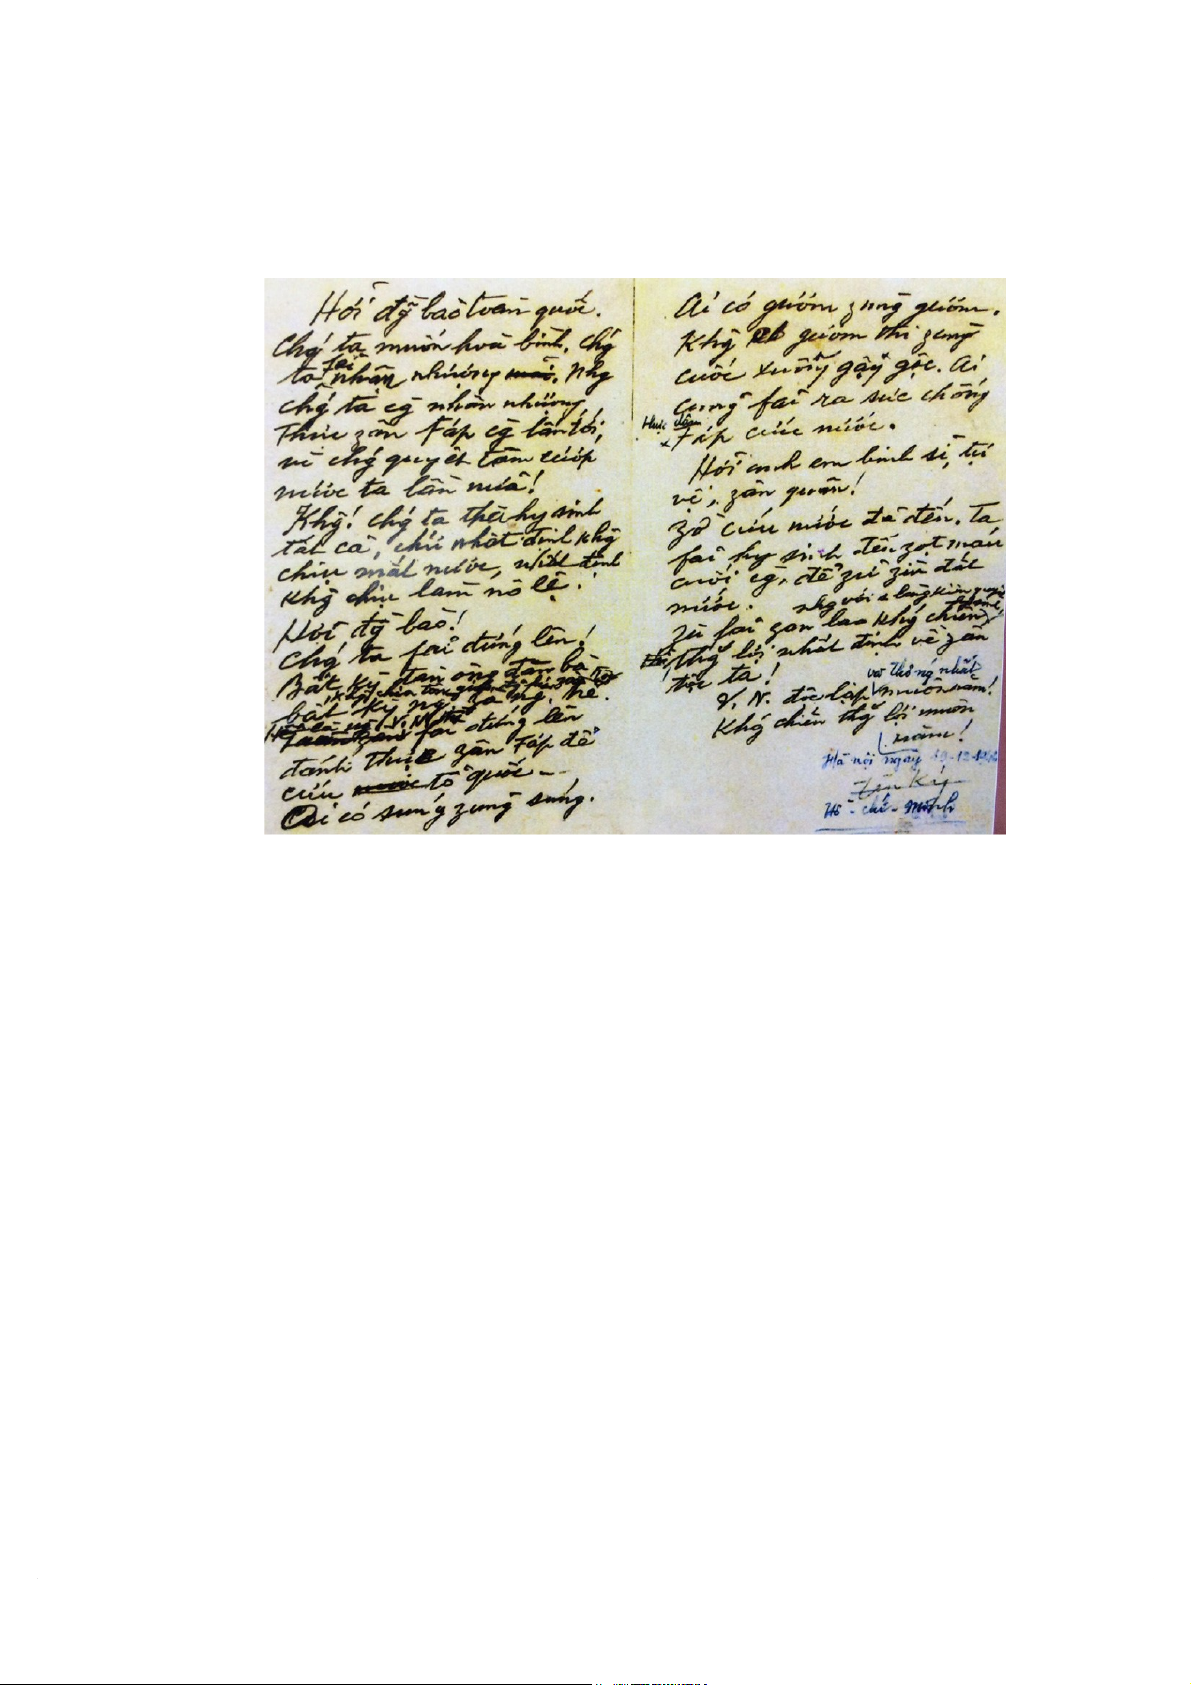 Hỡi đg̀ bào toàn quốc.
Chǵ ta muốn hoà bình, chǵ
ta fải nhân nhượng. Nhg
chǵ ta cg̀ nhân nhượng
Thực zân Fáp cg̀ lấn tới,
vì chǵ quyết tâm cướp
nước ta lần nữa!
Khg! chǵ ta thà hy sinh
tất cả, chứ nhất định khg
chịu mất nước, nhất định
khg chịu làm nô lệ.
Hỡi đg̀ bào!
Chǵ ta fải đứng lên!
Bất kỳ đàn ông đàn bà
bất kỳ ng zà ng. trẻ.
fải đứng lên
đánh thực zân Fáp để
cứu tổ quốc
Ai có súng zùng súng.
Ai có gươm zùng gươm.
Khg có gươm thì zùng
cuốc xuổng gậy gộc. Ai
cũng fải ra sức chống
thực dân
Fáp cứu nước.
Hỡi anh em binh sĩ, tự
vệ, zân quân!
Zờ cứu nước đã đến. Ta
fải hy sinh đến zọt máu
cuối cg̀, để zữ zìn đất
nước.
Zù fải zan lao khǵ chiến
nhg với 1 lòng kiên quyết
thắg lợi nhất định về zân
tộc ta!
V. N. độc lập và thống nhất muôn năm!
Khǵ chiến thắg lợi muôn
năm!
Hà nội ngày 19-12-1946
Hồ-chí-Minh